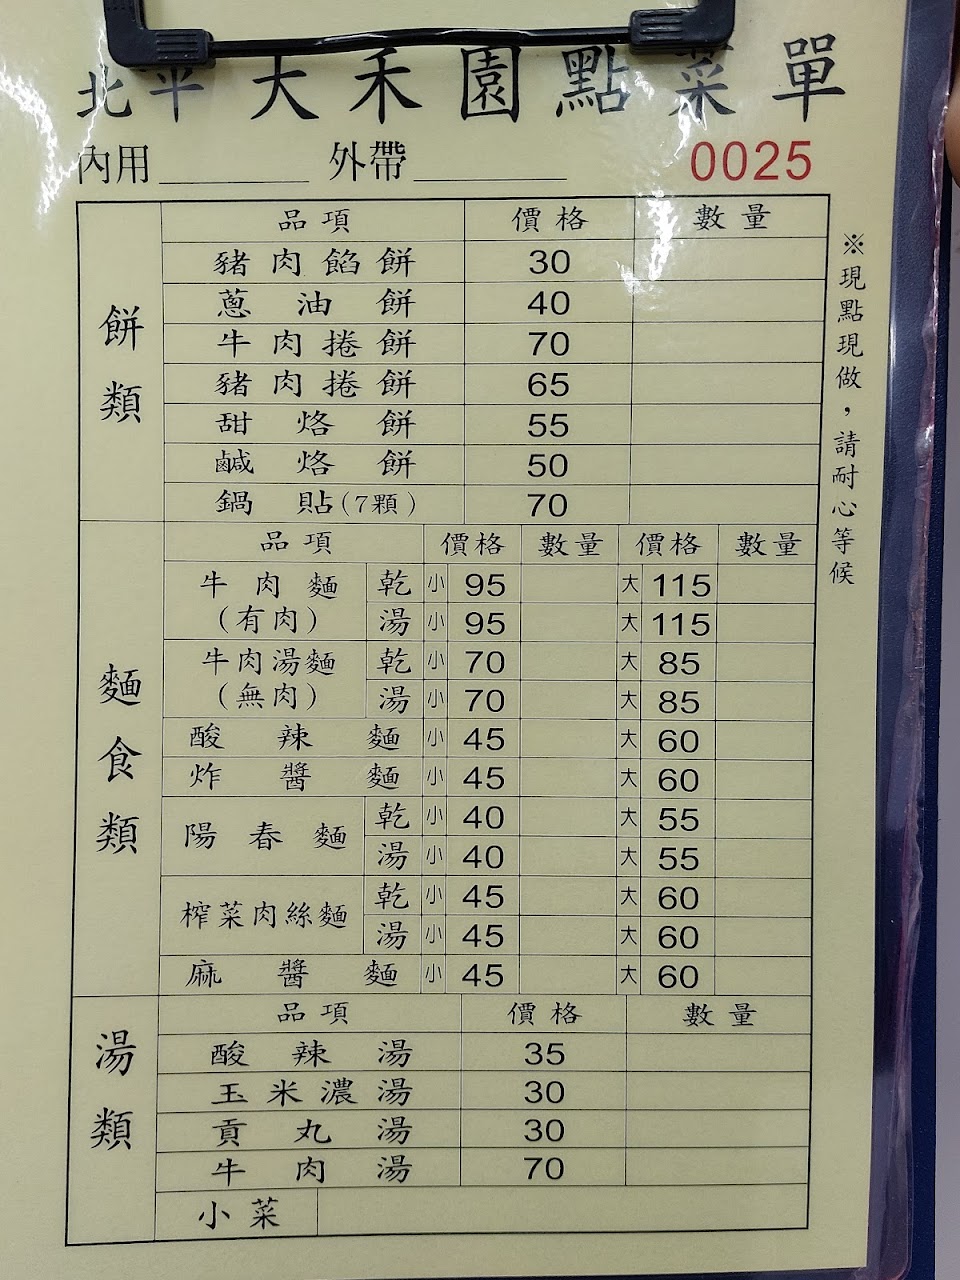 北平大禾園點菜單
內用 外帶 0025
餅類
品項 價格 數量
豬肉餡餅 30
蔥油餅 40
牛肉捲餅 70
豬肉捲餅 65
甜烙餅 55
鹹烙餅 50
鍋貼(7顆) 70
※現點現做，請耐心等候
麵食類
品項 價格 數量 價格 數量
牛肉麵 乾 小 95 大 115
(有肉) 湯 小 95 大 115
牛肉湯麵 乾 小 70 大 85
(無肉) 湯 小 70 大 85
酸辣麵 小 45 大 60
炸醬麵 小 45 大 60
陽春麵 乾 小 40 大 55
湯 小 40 大 55
榨菜肉絲麵 乾 小 45 大 60
湯 小 45 大 60
麻醬麵 小 45 大 60
湯類
品項 價格 數量
酸辣湯 35
玉米濃湯 30
貢丸湯 30
牛肉湯 70
小菜